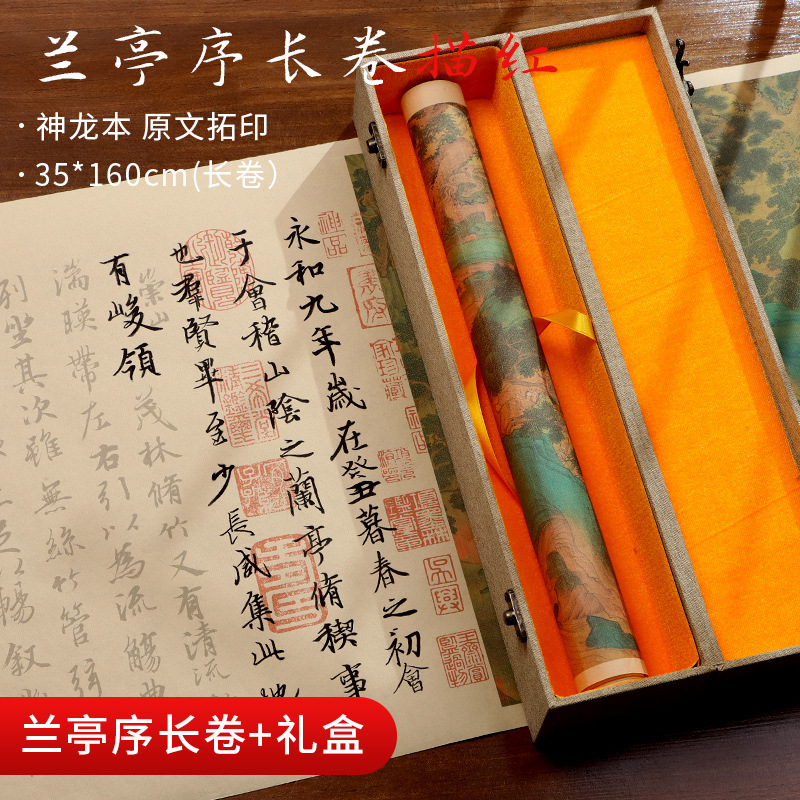 兰亭序长卷描红
·神龙本 原文拓印
·35*160cm(长卷)
永和九年歲在癸丑暮春之初會
于會稽山陰之蘭亭脩稧事
也羣賢畢至少長咸集此地
崇山
有峻領茂林脩竹又有清流
湍暎帶左右引以為流觴曲
列坐其次雖無絲竹管弦
暢叙
兰亭序长卷+礼盒